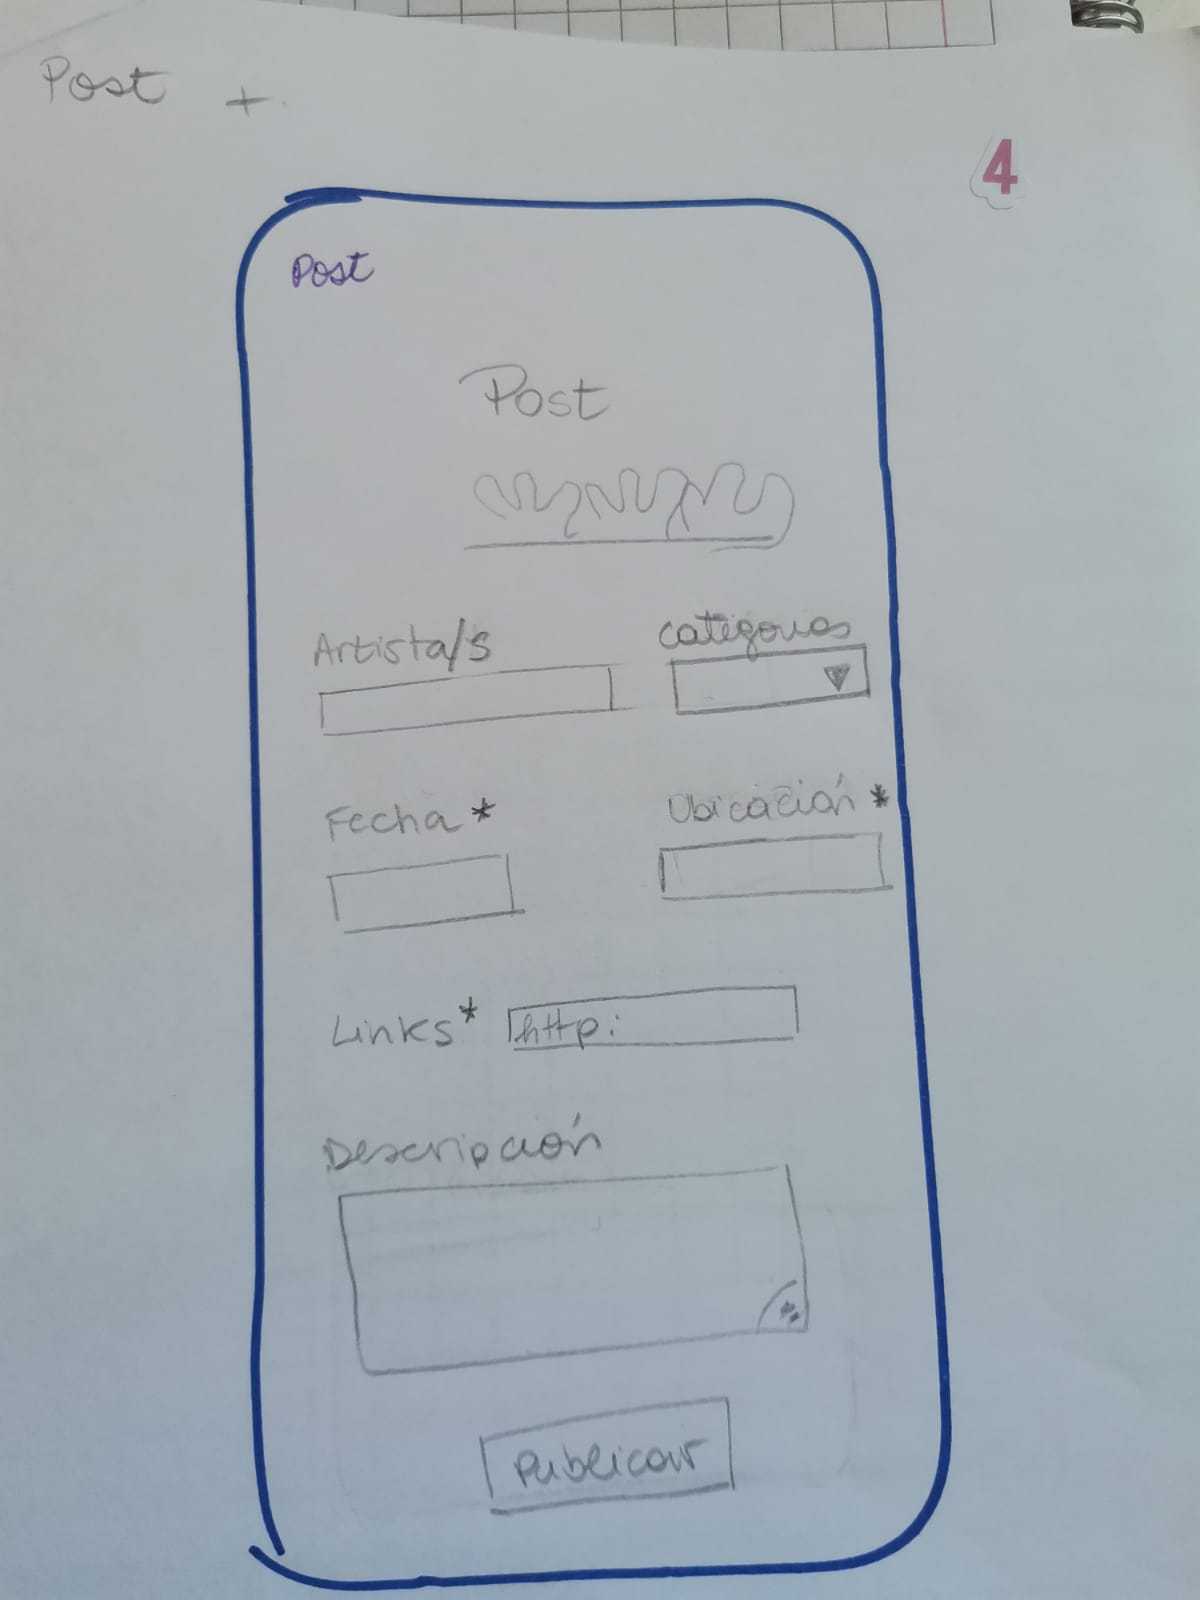 Post +
4
Post
Post
Artista/s categorias
Fecha* Ubicación*
Links* http:
Descripción
Publicar